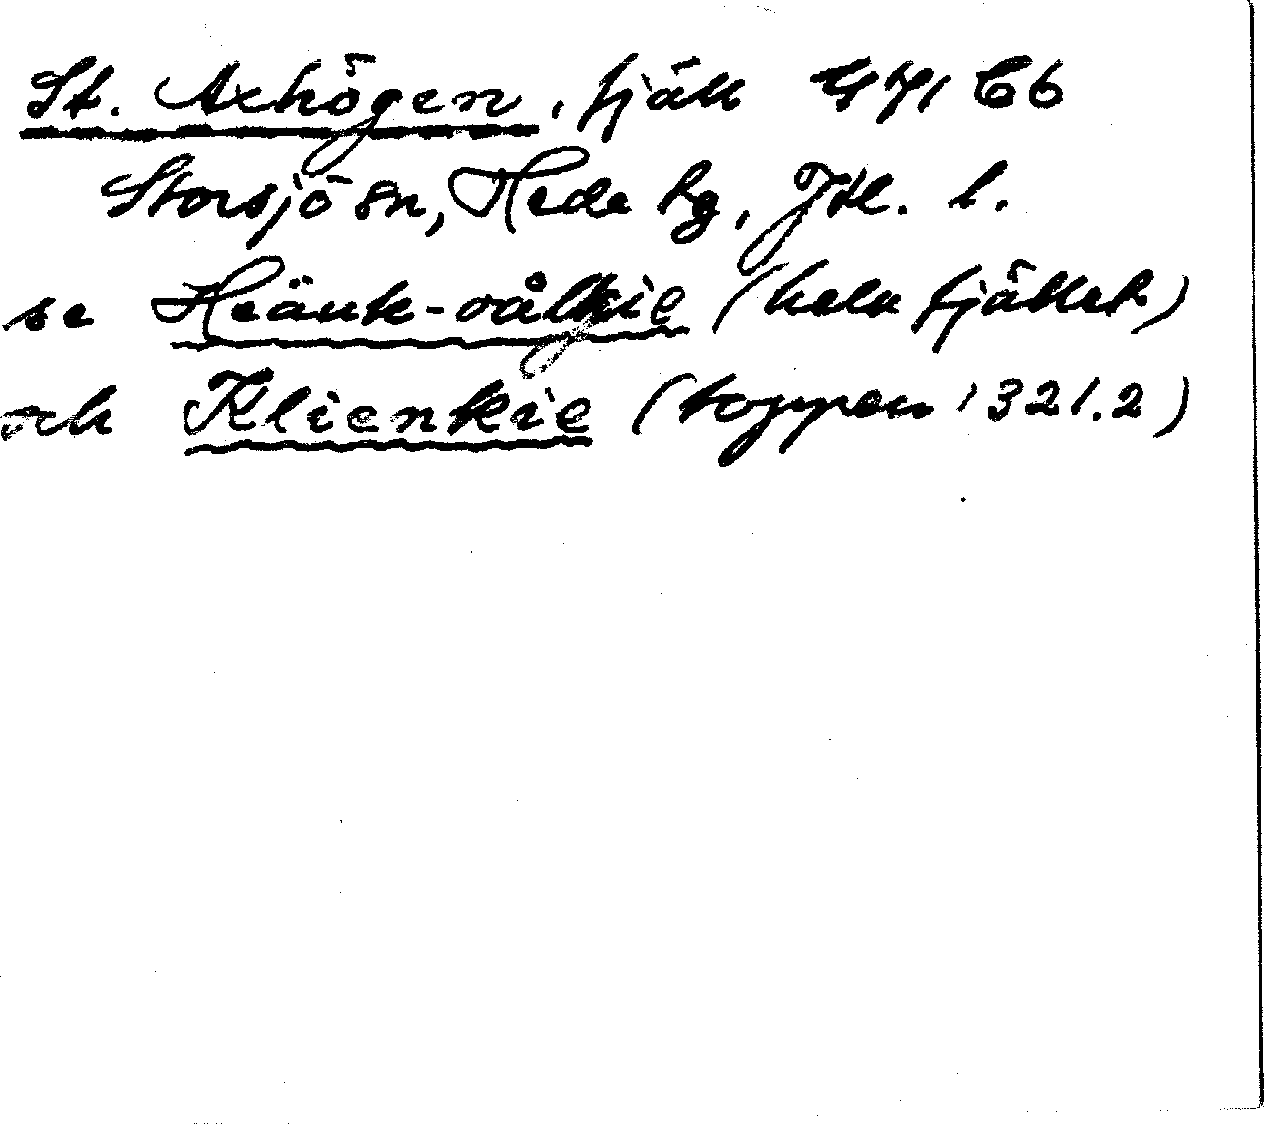 St. Axhögen, fjäll 47/1 C6
Storsjö sn, Hede tg, Jtl. l.
se Heäuk-vålkie (hela fjället)
och Klienkie (toppen 1321.2)